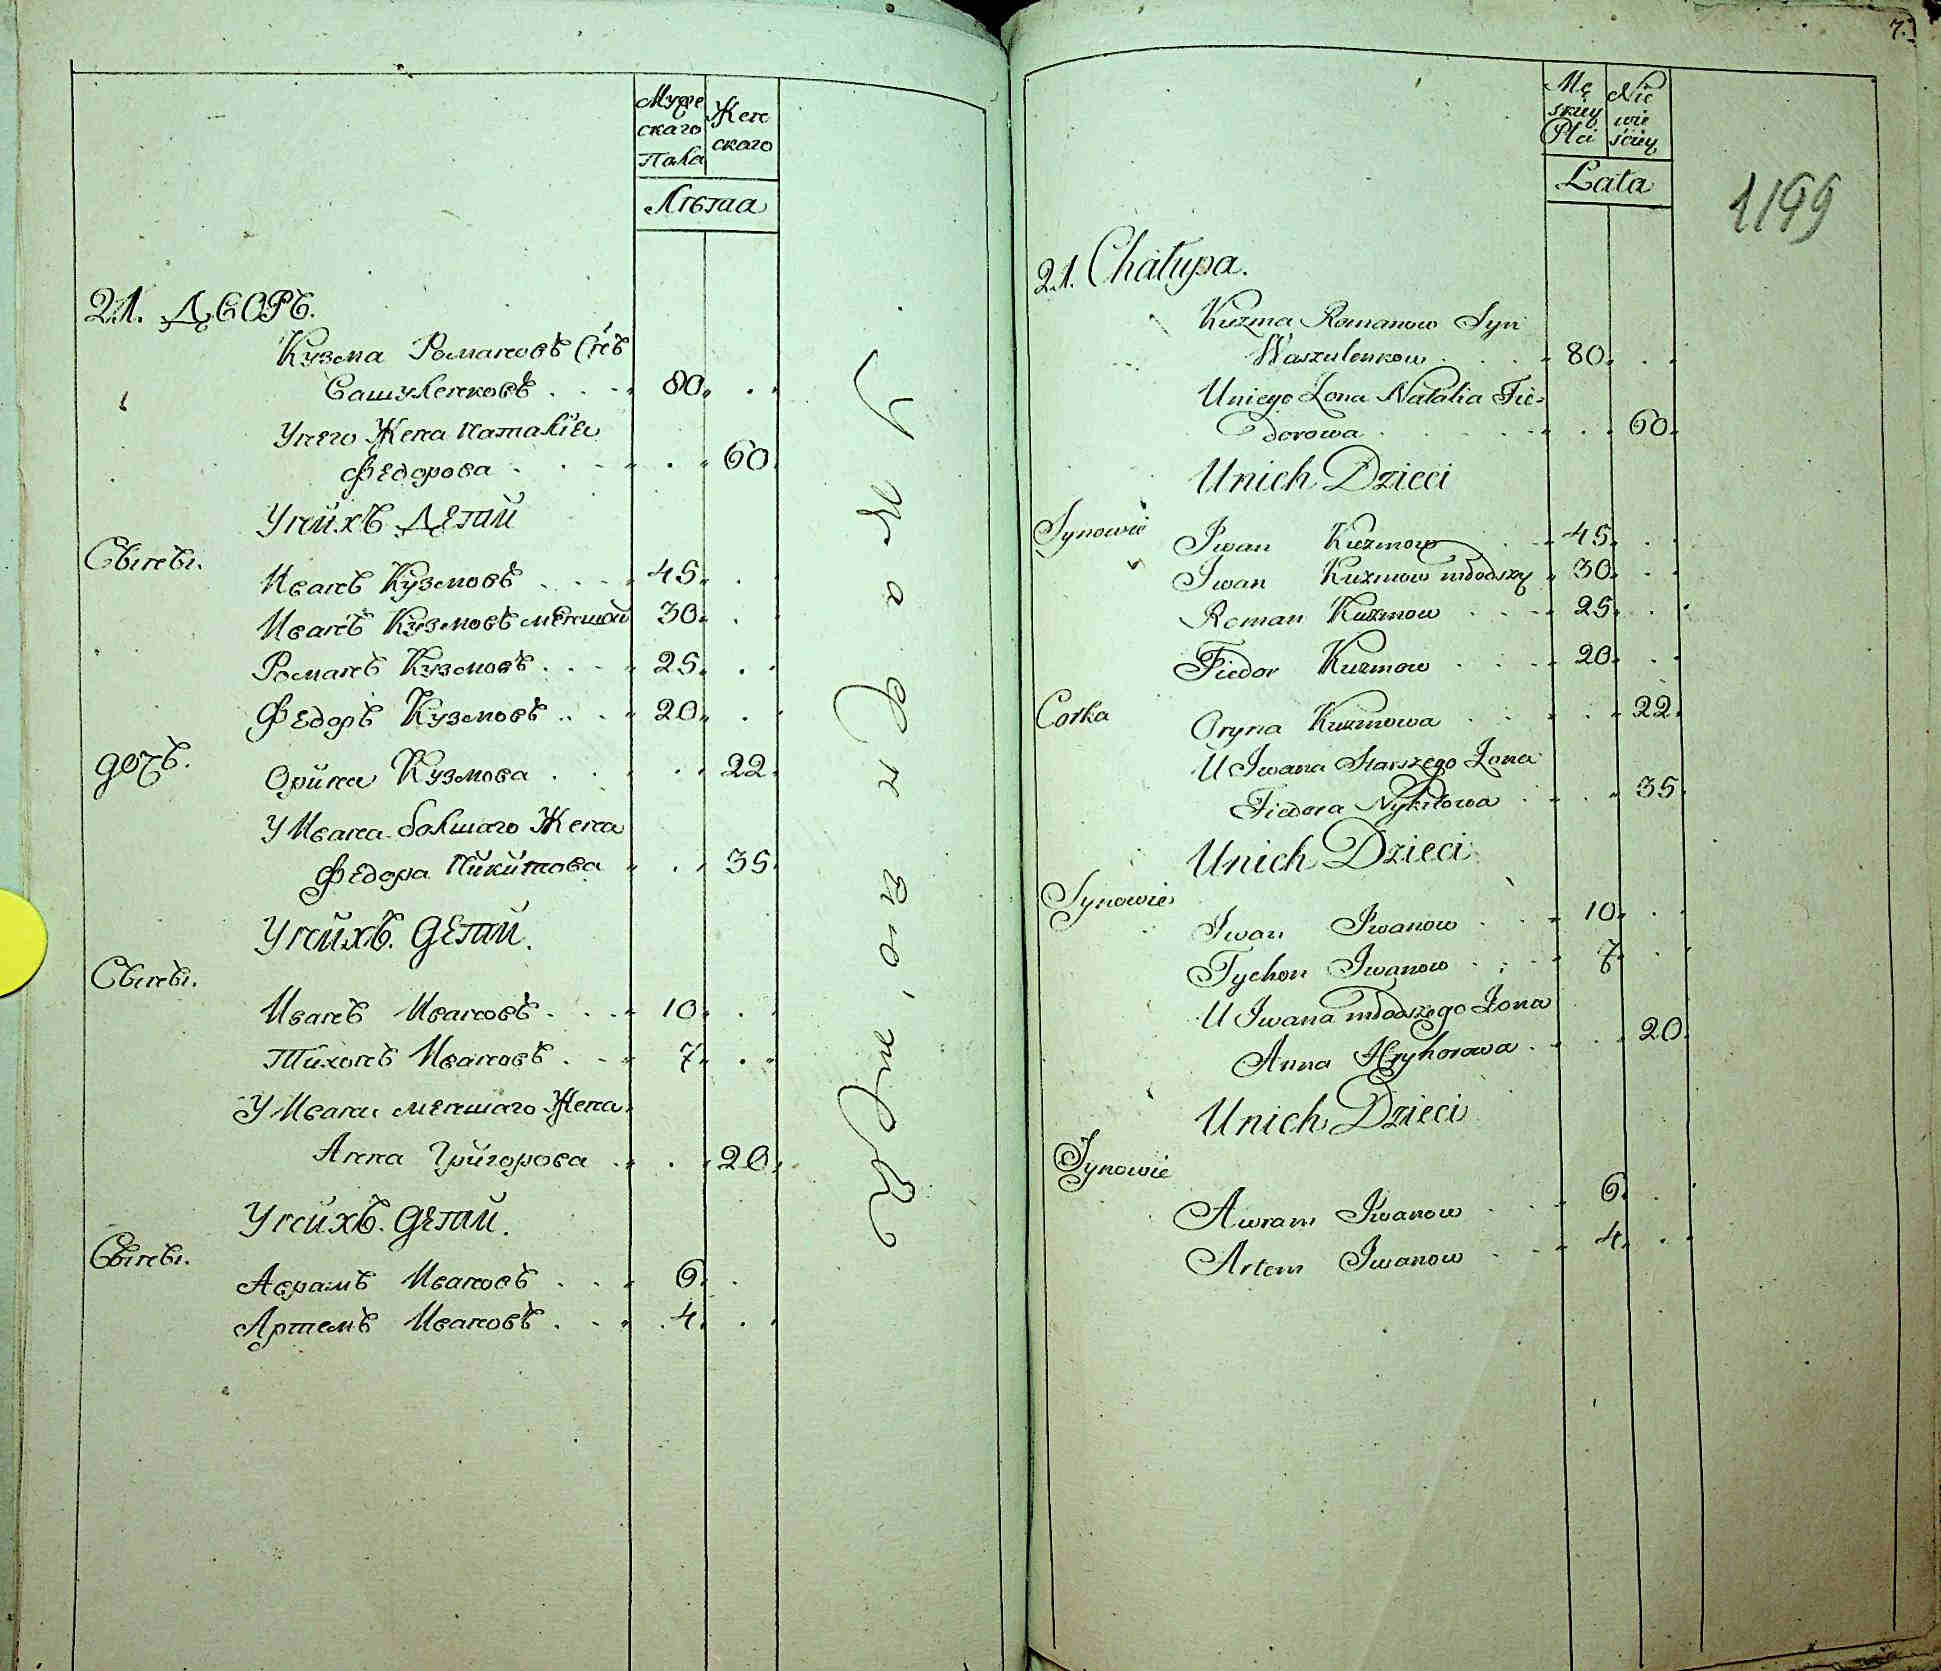 Муже
скаго
Пала
Жен
скаго
Лѣта
21. ДВОРЪ.
Кузма Романовъ Снъ
Вашуленковъ
80
Унего Жена Наталiя
Федорова
60
Унихъ Детии
Сынеы.
Иванъ Кузмовъ 45
Иванъ Кузмовъ меншои 30
Романъ Кузмовъ 25
Федоръ Кузмовъ 20
дочь.
Орина Кузмова 22
У Ивана болшаго Жена
Федора Никитова 35
Унихъ. Детии.
Сынеы.
Иванъ Ивановъ 10
Тихонъ Ивановъ 7
У Ивана меншаго Жена
Анна Григорова 20
Унихъ. Детии.
Сынеы.
Аврамъ Ивановъ 6
Артемъ Ивановъ 4
7.
Mę
skiey
Płci
Nie
wie
ściey
Lata
1199
21. Chałupa.
Kuzma Romanow Syn
Waszulenkow 80
Uniego Żona Natalia Fie=
dorowa 60
Unich Dzieci
Synowie
Iwan Kuzmow 45
Iwan Kuzmow młodszy 30
Roman Kuzmow 25
Fiedor Kuzmow 20
Corka
Oryna Kuzmowa 22
U Iwana Starszego Żona
Fiedora Nykitowa 35
Unich Dzieci
Synowie
Iwan Iwanow 10
Tychon Iwanow 7
U Iwana młodszego Żona
Anna Hryhorowa 20
Unich Dzieci
Synowie
Awram Iwanow 6
Artem Iwanow 4